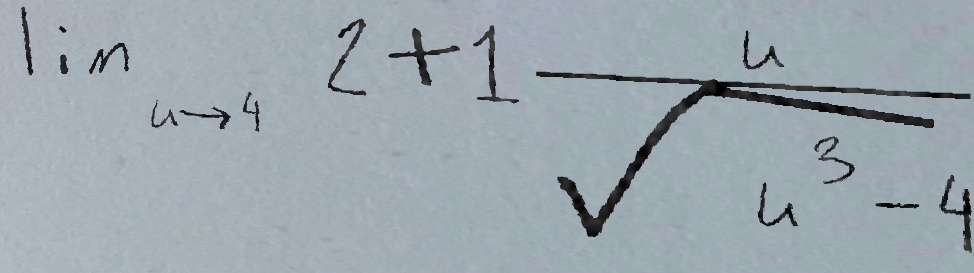 lim u→4 2+1 u/√(u³-4)